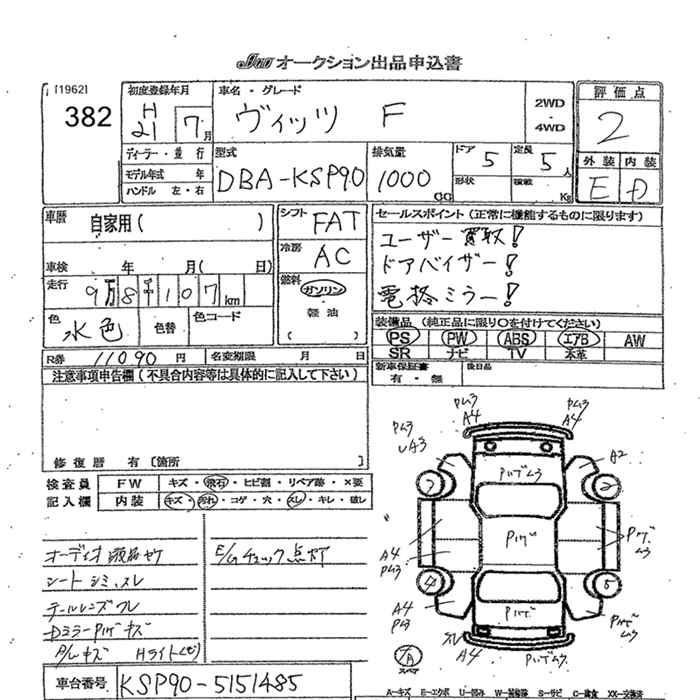 JU オークション出品申込書
[1962]
382
初度登録年月
H
21 7月
車名・グレード
ヴィッツ F
2WD
・
4WD
評価点
2
外装 内装
E D
ディーラー・並行
モデル年式 年
ハンドル 左・右
型式
DBA-KSP90
排気量
1000
CC
ドア
5
形状
定員
5 人
積載
Kg
車歴
自家用( )
車検 年 月( 日)
走行
9万8千107km
色
水色
色替
色コード
R券 11090 円
名変期限 月 日
シフト
FAT
冷房
AC
燃料
ガソリン
軽油
( )
セールスポイント(正常に機能するものに限ります)
ユーザー買取!
ドアバイザー!
電格ミラー!
装備品(純正品に限り〇を付けてください)
PS PW ABS エアB AW
SR ナビ TV 本革
新車保証書
有・無
後日品
注意事項申告欄(不具合内容等は具体的に記入して下さい)
修復歴 有 〔箇所 〕
検査員
記入欄
FW キズ・飛石・ヒビ割・リペア跡・×要
内装 キズ・汚れ・コゲ・穴・スレ・キレ・破レ
オーディオ
シートシミ、スレ
テールレンズワレ
DミラーPハゲキズ
Hライト
E/Gチェック点灯
車台番号
KSP90-5151485
A4
A4
A3
A2
Pハゲ
Pハゲ
A4
A4
スレ
A4
7/A
スペア
A-キズ E-エクボ U-凹み W-補修跡 S-サビ C-腐食 XX-交換済